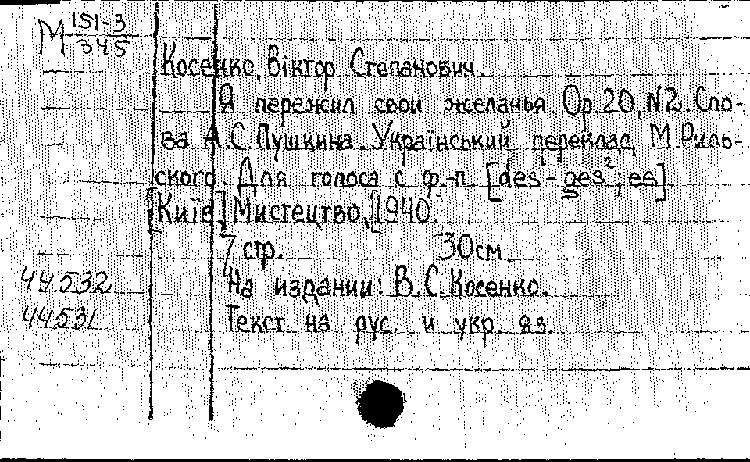 М 151-3
345
Косенко, Віктор Степанович.
Я пережил свои желанья. Ор. 20, N2. Сло-
ва А.С. Пушкина. Український переклад М. Риль-
ского. Для голоса с ф.-п. [des¹ - ges²; es]
[Київ] Мистецтво, [1940.
7 стр. 30см.
На издании: В.С. Косенко.
Текст на рус. и укр. яз.
44532
44531